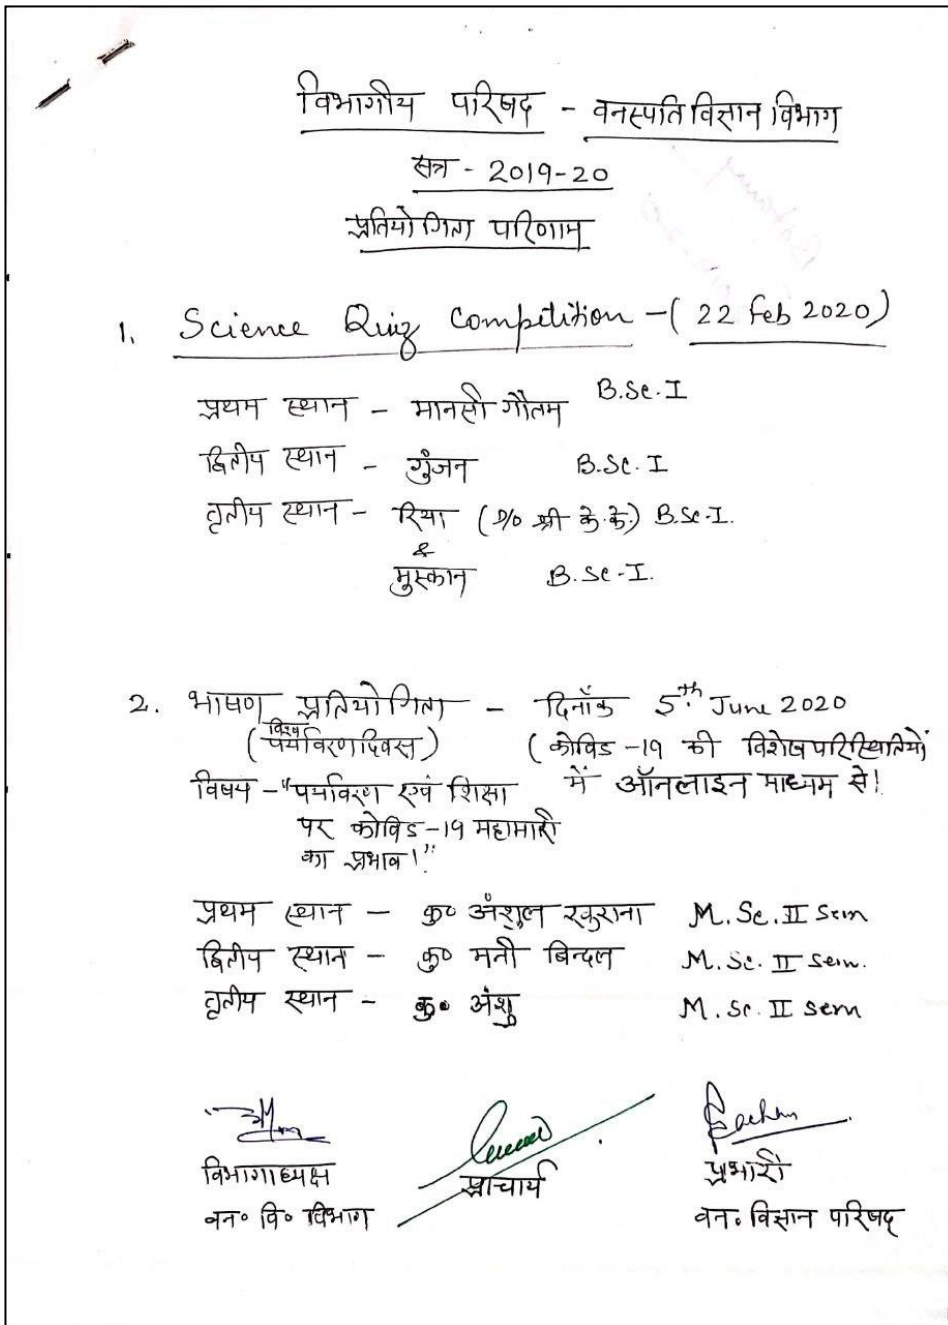 विभागीय परिषद - वनस्पति विज्ञान विभाग
सत्र - 2019-20
प्रतियोगिता परिणाम
1. Science Quiz Competition - ( 22 Feb 2020 )
प्रथम स्थान - मानसी गौतम B.Sc. I
द्वितीय स्थान - गुंजन B.Sc. I
तृतीय स्थान - रिया (D/o श्री के.के.) B.Sc-I.
&
मुस्कान B.Sc-I.
2. भाषण प्रतियोगिता - दिनाँक 5th June 2020
(विश्व पर्यावरण दिवस) (कोविड -19 की विशेष परिस्थितियों
विषय - "पर्यावरण एवं शिक्षा में ऑनलाइन माध्यम से।
पर कोविड-19 महामारी
का प्रभाव।"
प्रथम स्थान - कु० अंशुल खुराना M.Sc. II Sem
द्वितीय स्थान - कु० मनी बिन्दल M.Sc. II Sem.
तृतीय स्थान - कु० अंशु M.Sc. II Sem
विभागाध्यक्ष प्राचार्य प्रभारी
वन० वि० विभाग वन० विज्ञान परिषद्